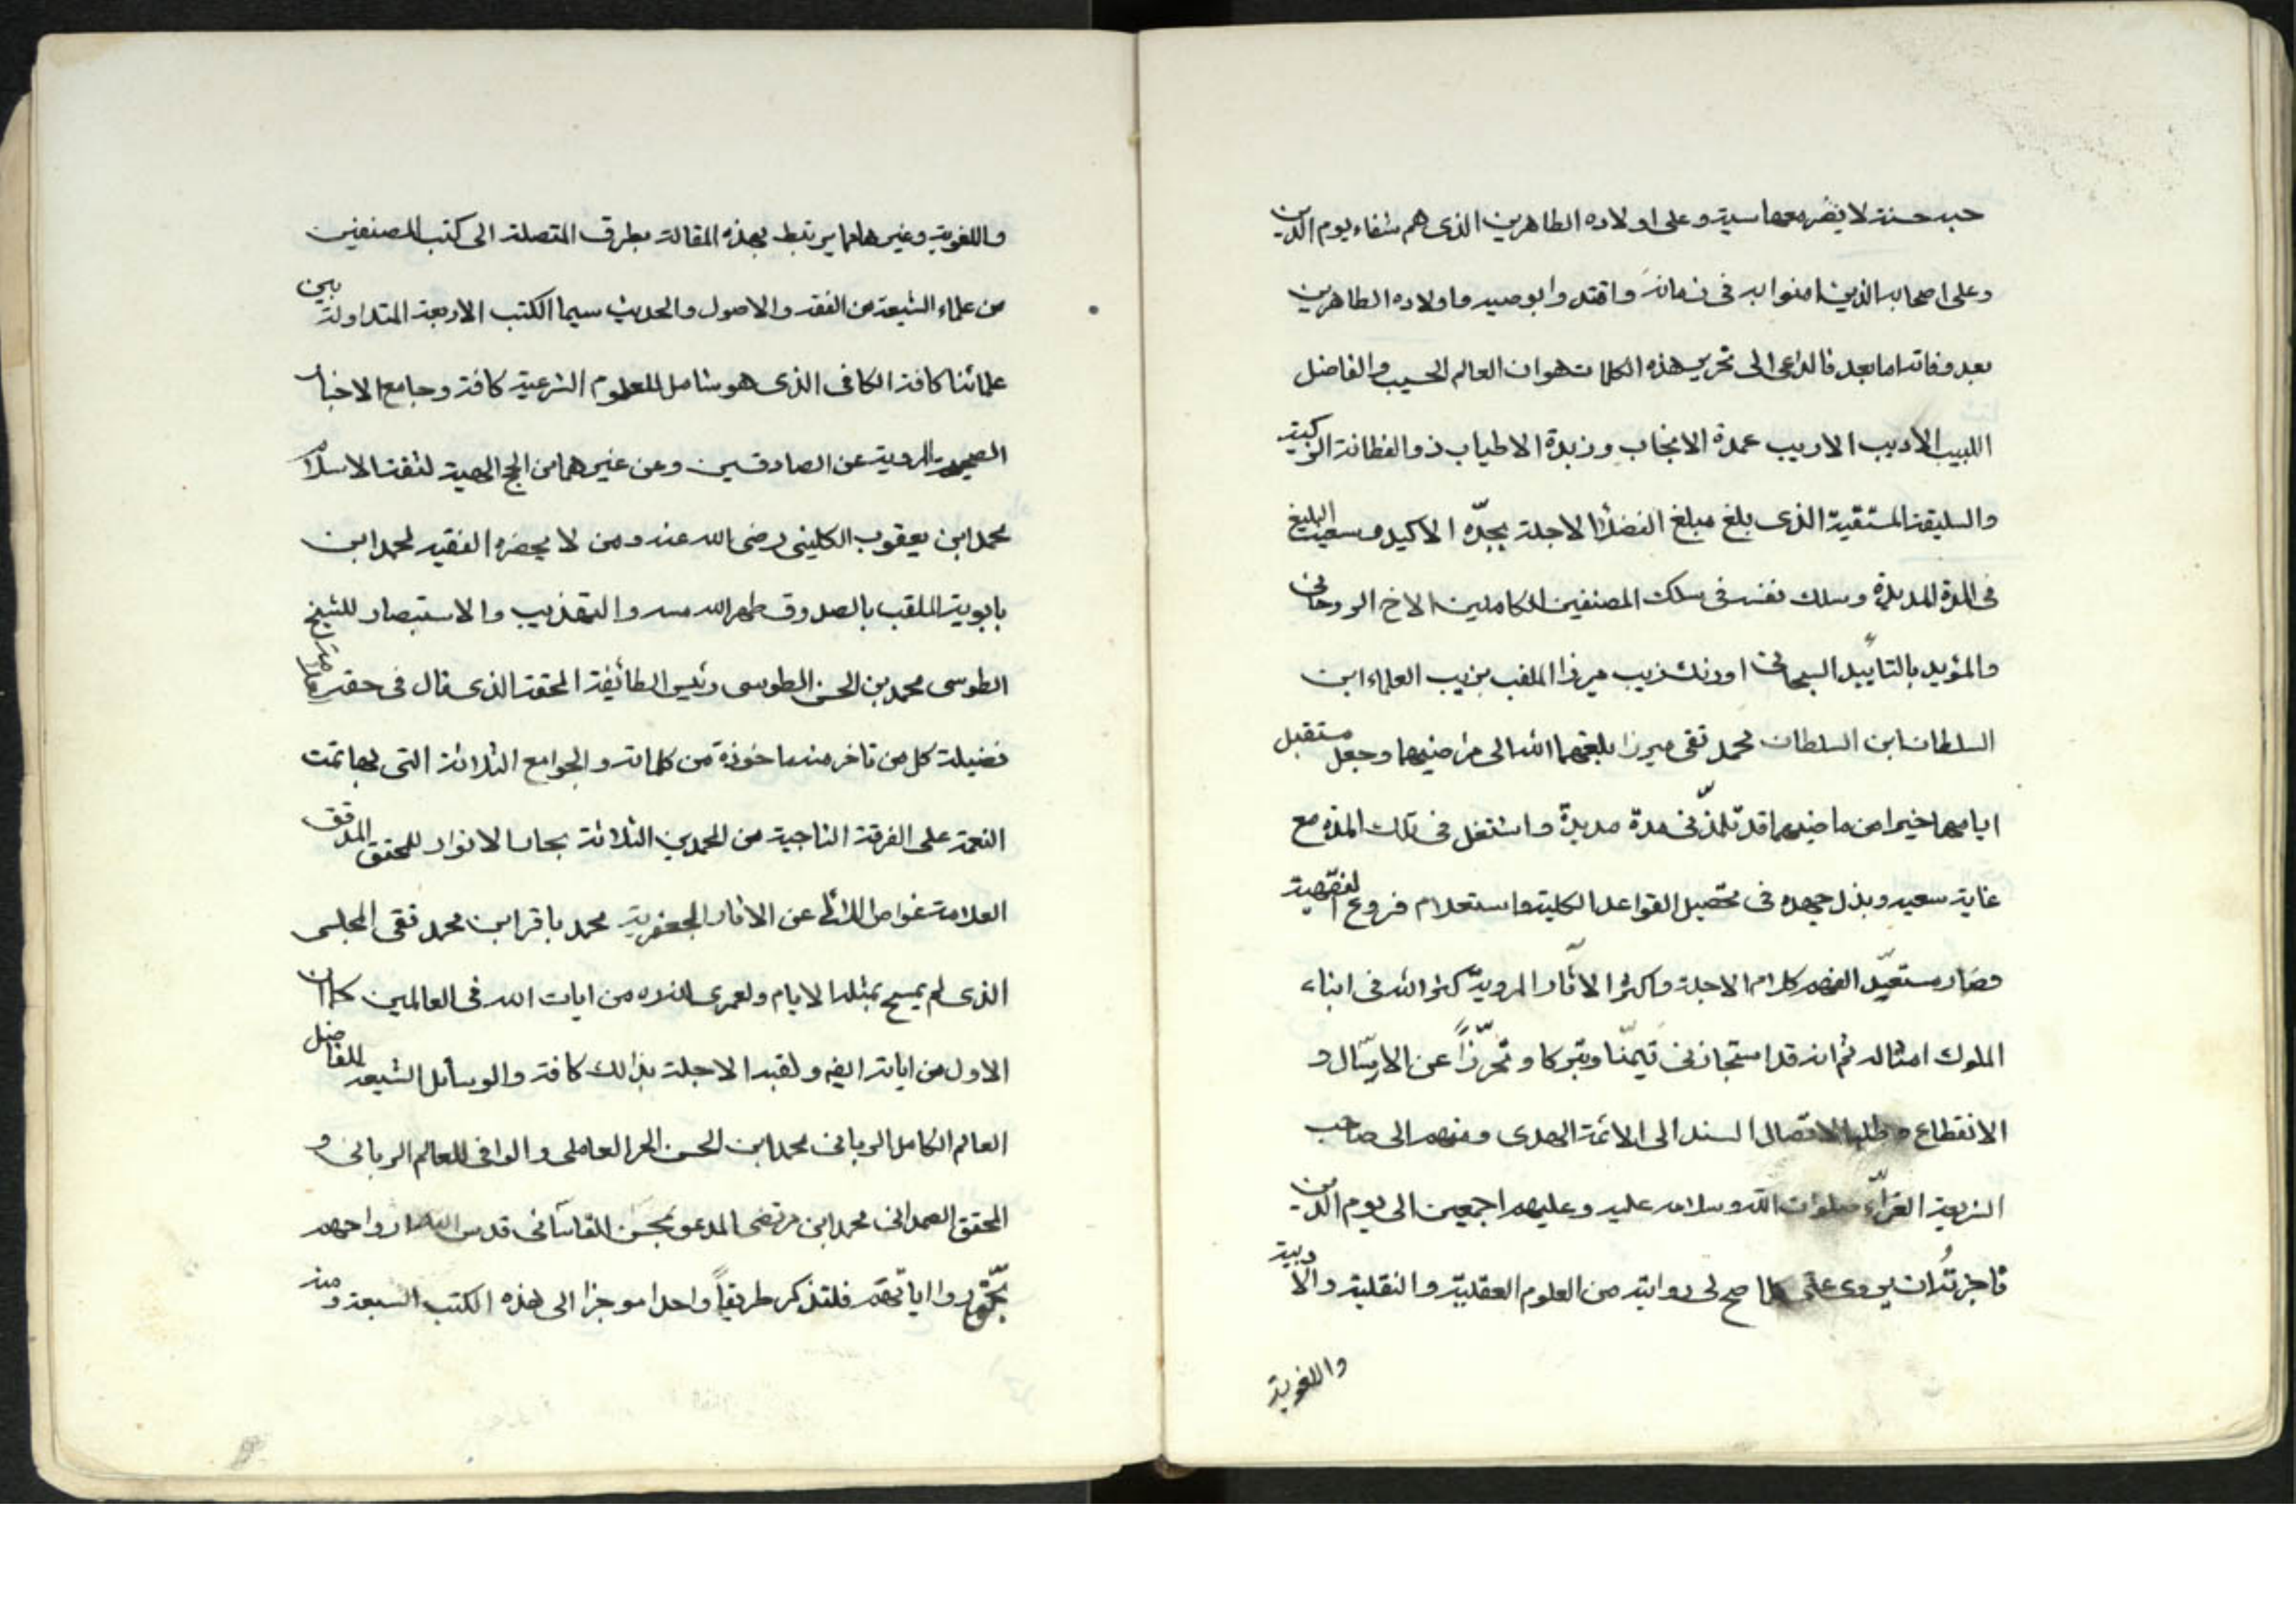 حبه حسنة لا يضر معها سيئة وعلى اولاده الطاهرين الذى هم شفعاء يوم الدين
وعلى اصحابه الذين امنوا به فى زمانه واقتدوا بوصيه واولاده الطاهرين
بعد وفاته اما بعد فالداعى الى تحرير هذه الكلمات هو ان العالم الحسيب والفاضل
اللبيب الاديب الاريب عمدة الانجاب وزبدة الاطياب ذو الفطانة الزكية
والسليقة المستقيمة الذى بلغ مبلغ الفضلا الاجلة بجدّه الاكيد وسعيه البليغ
فى المدة المديدة وسلك نفسه فى سلك المصنفين الكاملين الاخ الروحانى
والمؤيد بالتاييد السبحانى اورنك زيب ميرزا الملقب بزيب العلماء ابن
السلطان ابن السلطان محمد تقى ميرزا بلغهما الله الى مراضيهما وجعل مستقبل
ايامهما خيرا من ماضيهما قد تلمّذنى مدة مديدة واشتغل فى تلك المدة مع
غاية سعيه وبذل جهده فى تحصيل القواعد الكلية واستعلام فروع الفقهية
وصار مستعيّد الفهم كلام الاجلة واكثر الآثار المرويّة كثر الله فى ابناء
الملوك امثاله ثم انه قد استجازنى تيمّنا وتبركا وتحرّزاً عن الارسال و
الانقطاع وطلبا لاتصال السند الى الائمة الهدى ومنهم الى صاحب
الشريعة الغرّاء صلوات الله وسلامه عليه وعليهم اجمعين الى يوم الدين
فاجزتُه ان يروى عنّى كلما صح لى روايته من العلوم العقلية والنقلية والادبية
واللغوية
واللغوية وغيرها مما يرتبط بهذه المقالة بطرق المتصلة الى كتب المصنفين
من علماء الشيعة من الفقه والاصول والحديث سيما الكتب الاربعة المتداولة بين
علمائنا كافة الكافى الذى هو شامل للعلوم الشرعية كافة وجامع الاخبار
الصحيحة المروية عن الصادقين وعن غيرهما من الحج الهية لثقة الاسلام
محمد ابن يعقوب الكلينى رضى الله عنه ومن لا يحضره الفقيه لمحمد ابن
بابوية الملقب بالصدوق طهر الله رمسه والتهذيب والاستبصار للشيخ
الطوسى محمد بن الحسن الطوسى رئيس الطائفة المحقة الذى قال فى حقه
فضيلة كل من تاخر منه ماخوذة من كلماته والجوامع الثلاثة التى بها تمت
النعمة على الفرقة الناجية من المحمدين الثلاثة بحار الانوار للمحقق المدقق
العلامة غواص اللآلى عن الاثار الجعفرية محمد باقر ابن محمد تقى المجلسى
الذى لم يسمح بمثله الايام ولعمرى انه من ايات الله فى العالمين كما ان
الاول من اياته ايضا ولقبه الاجلة بذالك كافة والوسائل الشيعه للفاضل
العالم الكامل الربانى محمد ابن الحسن الحر العاملى والوافى للعالم الربانى و
المحقق الصمدانى محمد ابن مرتضى المدعو بمحسن القاسانى قدس الله ارواحهم
بحق واياتهم فلنذكر طريقاً واحدا موجزا الى هذه الكتب السبعة ومنه